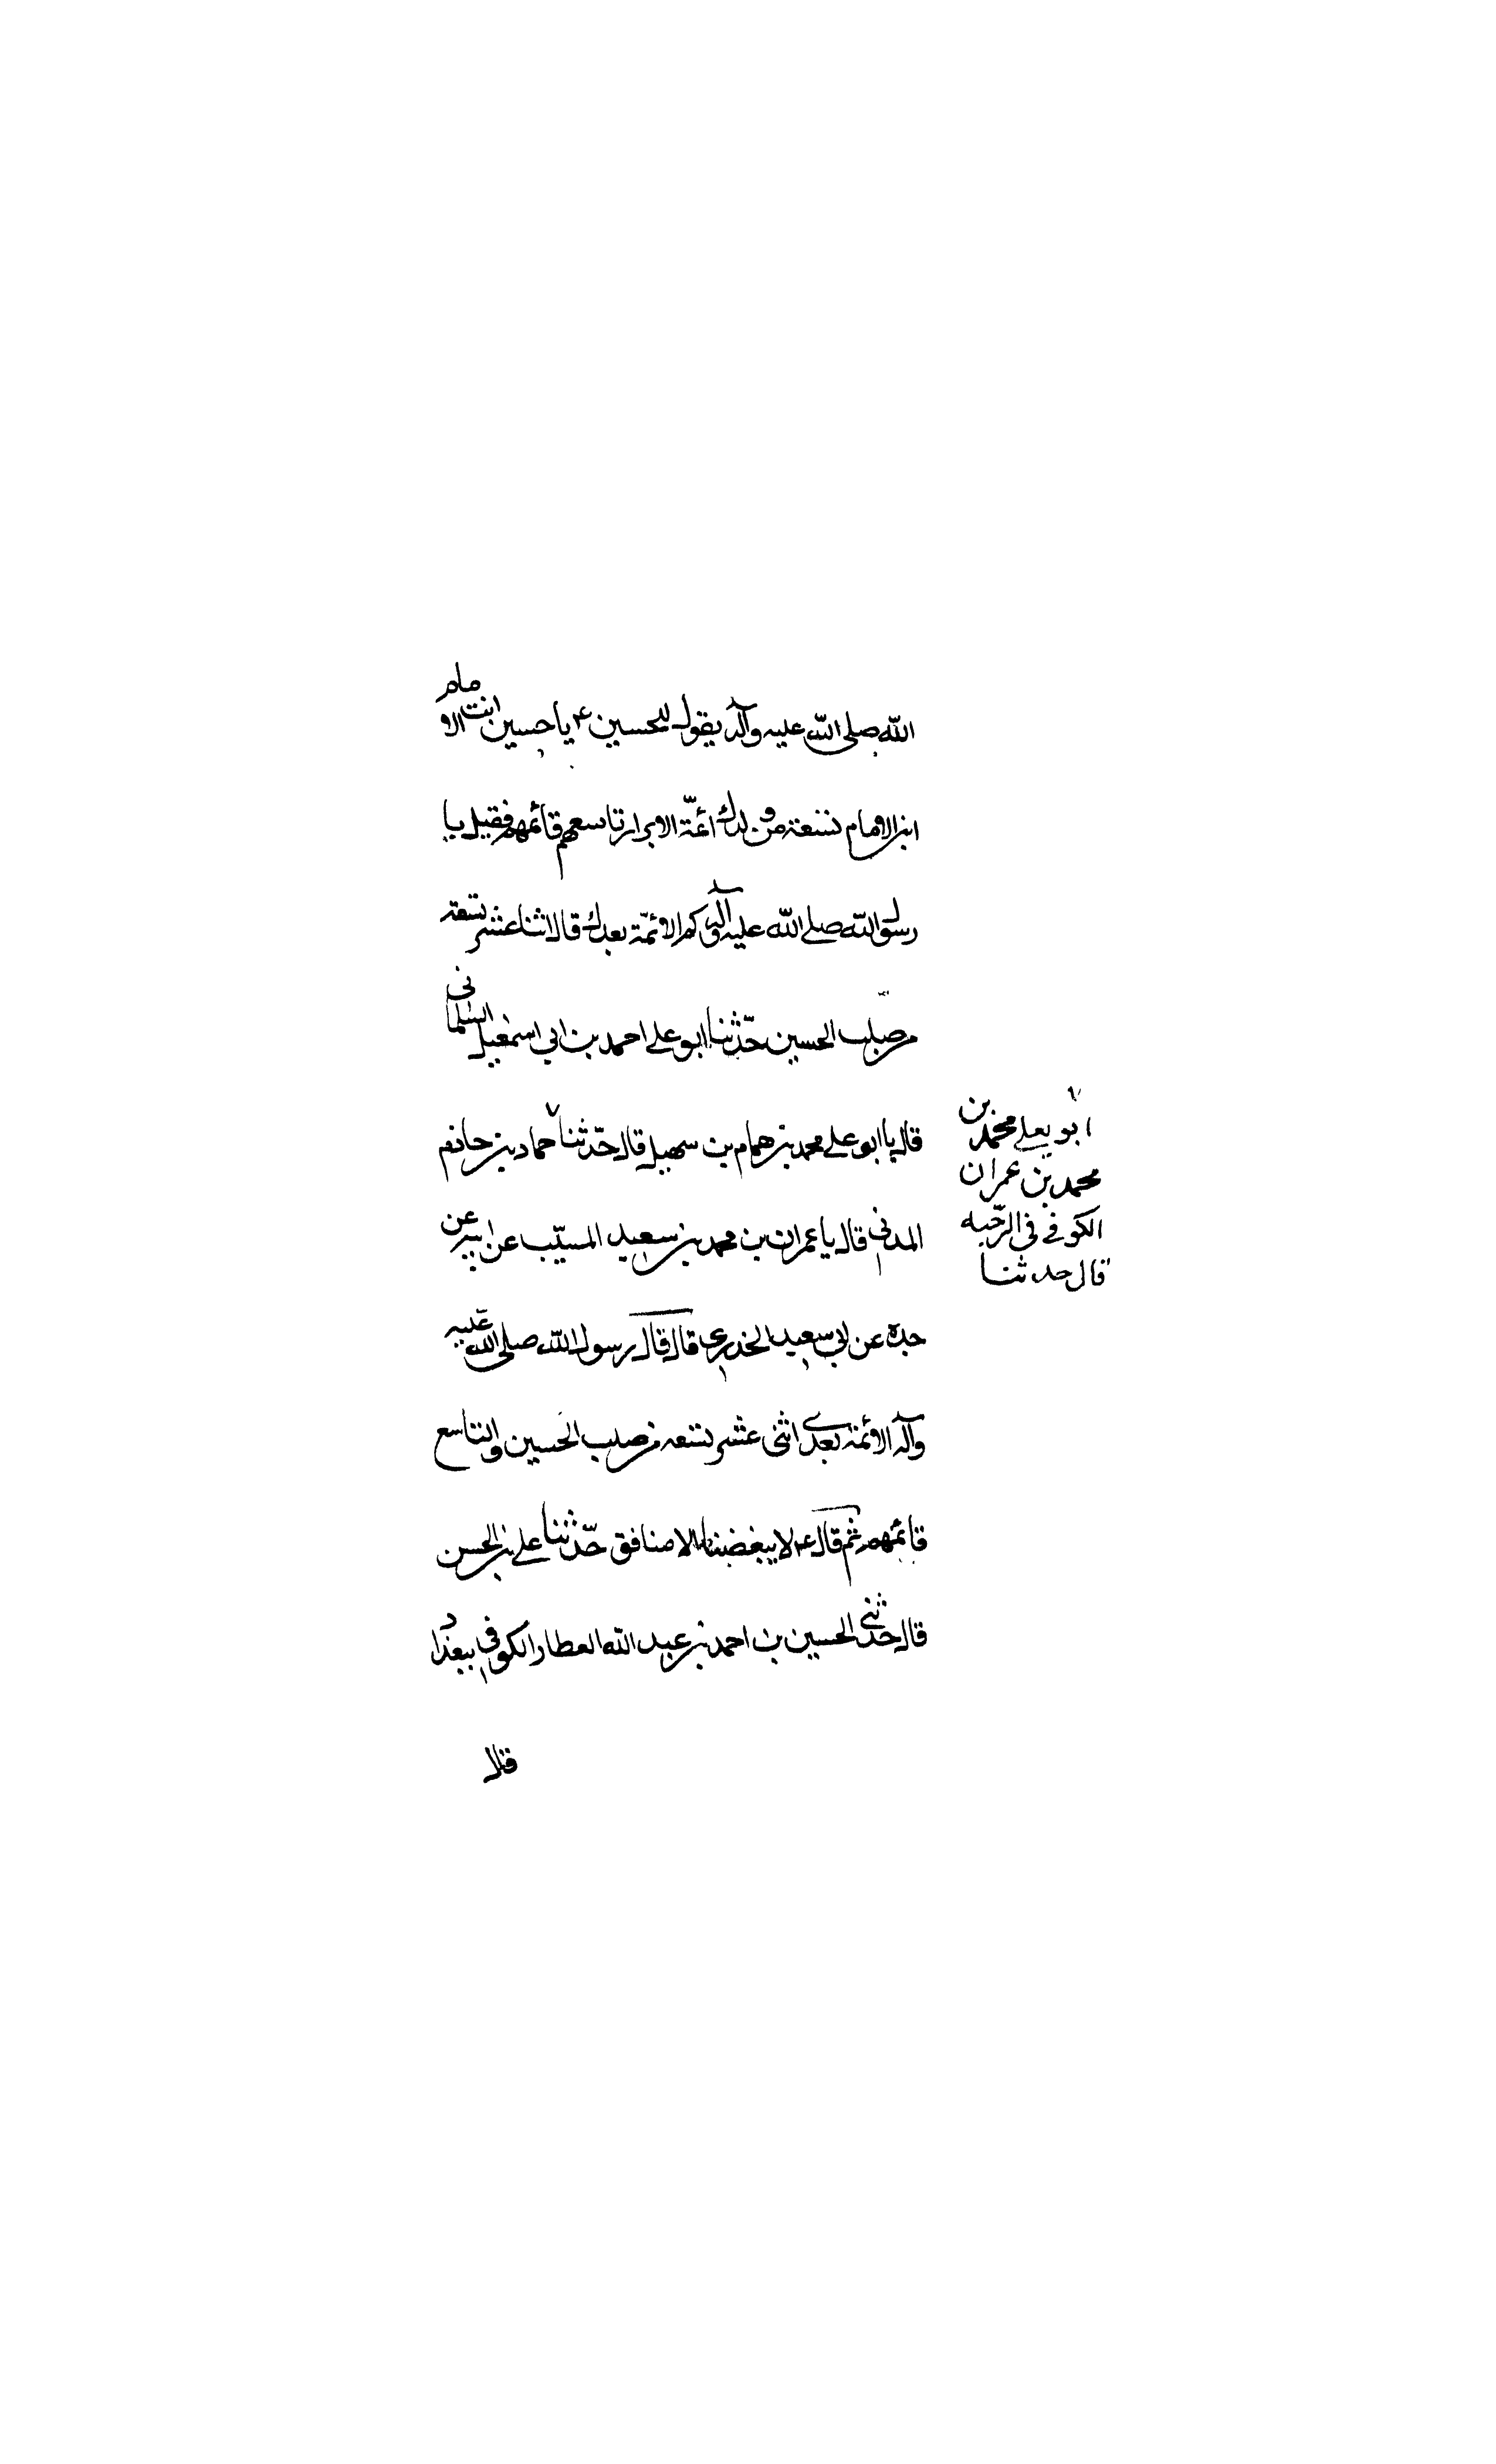 الله صلى الله عليه وآله يقول للحسين ع يا حسين انت الامام
ابن الامام تسعة من ولدك ائمّة الابرار تاسعهم قائمهم فقيل يا
رسول الله صلى الله عليه وآله كم الائمّة بعدك قال اثنا عشر تسعة
من صلب الحسين حدّثنا ابو على احمد بن ابى اسمعيل السلمانى
قال يا ابو على محمد بن همام بن سهيل قال حدّثنا حماد بن حازم
المدنى قال يا عمران بن محمد بن سعيد المسيّب عن ابيه عن
جده عن ابى سعيد الخدرى قال قال رسول الله صلى الله عليه
وآله الائمة بعدى اثنى عشر تسعه من صلب الحسين والتاسع
قائمهم ثم قال ع لا يبغضنا الا منافق حدّثنا على بن الحسن
قال حدثنى الحسين بن احمد بن عبد الله العطار الكوفى ببغداد
قال
ابو يعلى محمد بن
محمد بن عمران
الكوفى فى الرحبه
قال حدثنا